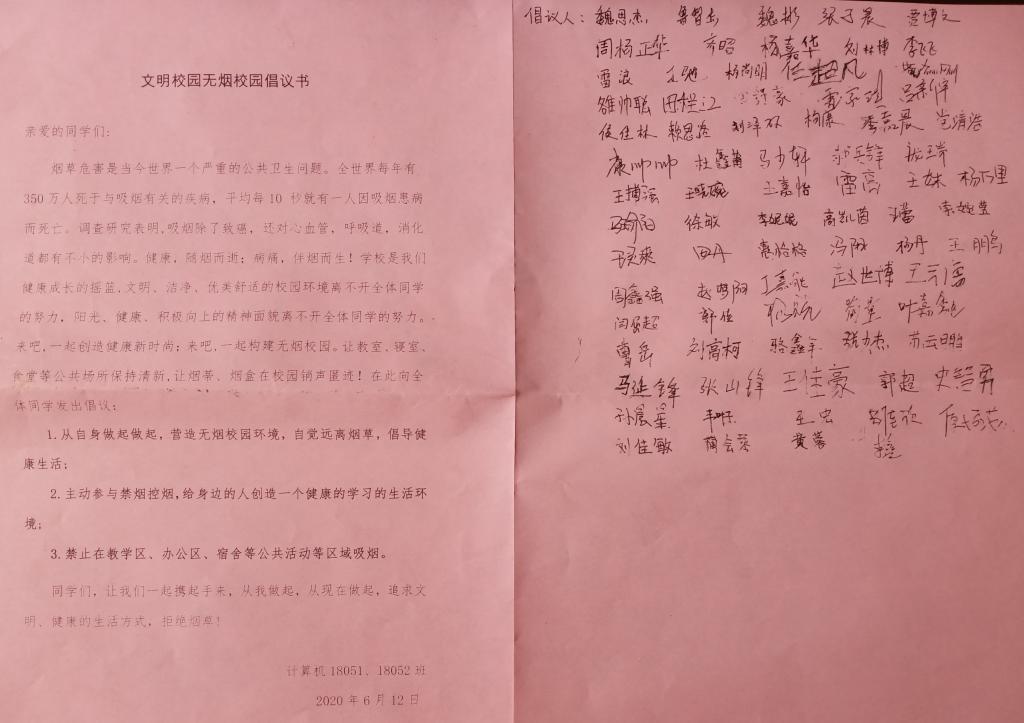 文明校园无烟校园倡议书
亲爱的同学们:
烟草危害是当今世界一个严重的公共卫生问题。全世界每年有
350万人死于与吸烟有关的疾病,平均每10 秒就有一人因吸烟患病
而死亡。调查研究表明,吸烟除了致癌,还对心血管,呼吸道,消化
道都有不小的影响。健康,随烟而逝;病痛,伴烟而生!学校是我们
健康成长的摇蓝,文明、洁净、优美舒适的校园环境离不开全体同学
的努力,阳光、健康、积极向上的精神面貌离不开全体同学的努力。
来吧,一起创造健康新时尚;来吧,一起构建无烟校园。让教室、寝室、
食堂等公共场所保持清新,让烟蒂、烟盒在校园销声匿迹!在此向全
体同学发出倡议:
1.从自身做起做起,营造无烟校园环境,自觉远离烟草,倡导健
康生活;
2.主动参与禁烟控烟,给身边的人创造一个健康的学习的生活环
境;
3.禁止在教学区、办公区、宿舍等公共活动等区域吸烟。
同学们,让我们一起携起手来,从我做起,从现在做起,追求文
明、健康的生活方式,拒绝烟草!
计算机 18051、18052 班
2020 年 6 月 12 日
倡议人: 魏思杰 魏彬 张子晨 贾博文
周杨正华 齐昭 杨嘉华 刘林博 李飞
雷浪 杨尚明 任超凡
雒帅聪 田程江
侯佳林 赖思培 刘泽欢 杨康 李嘉晨
康帅帅 杜鑫甫 马少轩
王博涵 王晓婉 王嘉怡 雷高 王妹 杨万里
徐敏 李妮妮 高凯茵 索婉莹
田丹 惠格格 冯阳 杨丹 王鹏
周鑫强 赵鸣阳 丁嘉能 赵世博
闫宸超 郭佳 杨航
曹岳 刘高柯 骆鑫年 张力杰 苏云鹏
马延锋 张山锋 王佳豪 郭超 史智勇
孙晨星 王虫
刘佳敏 蔺会荣 黄蓉